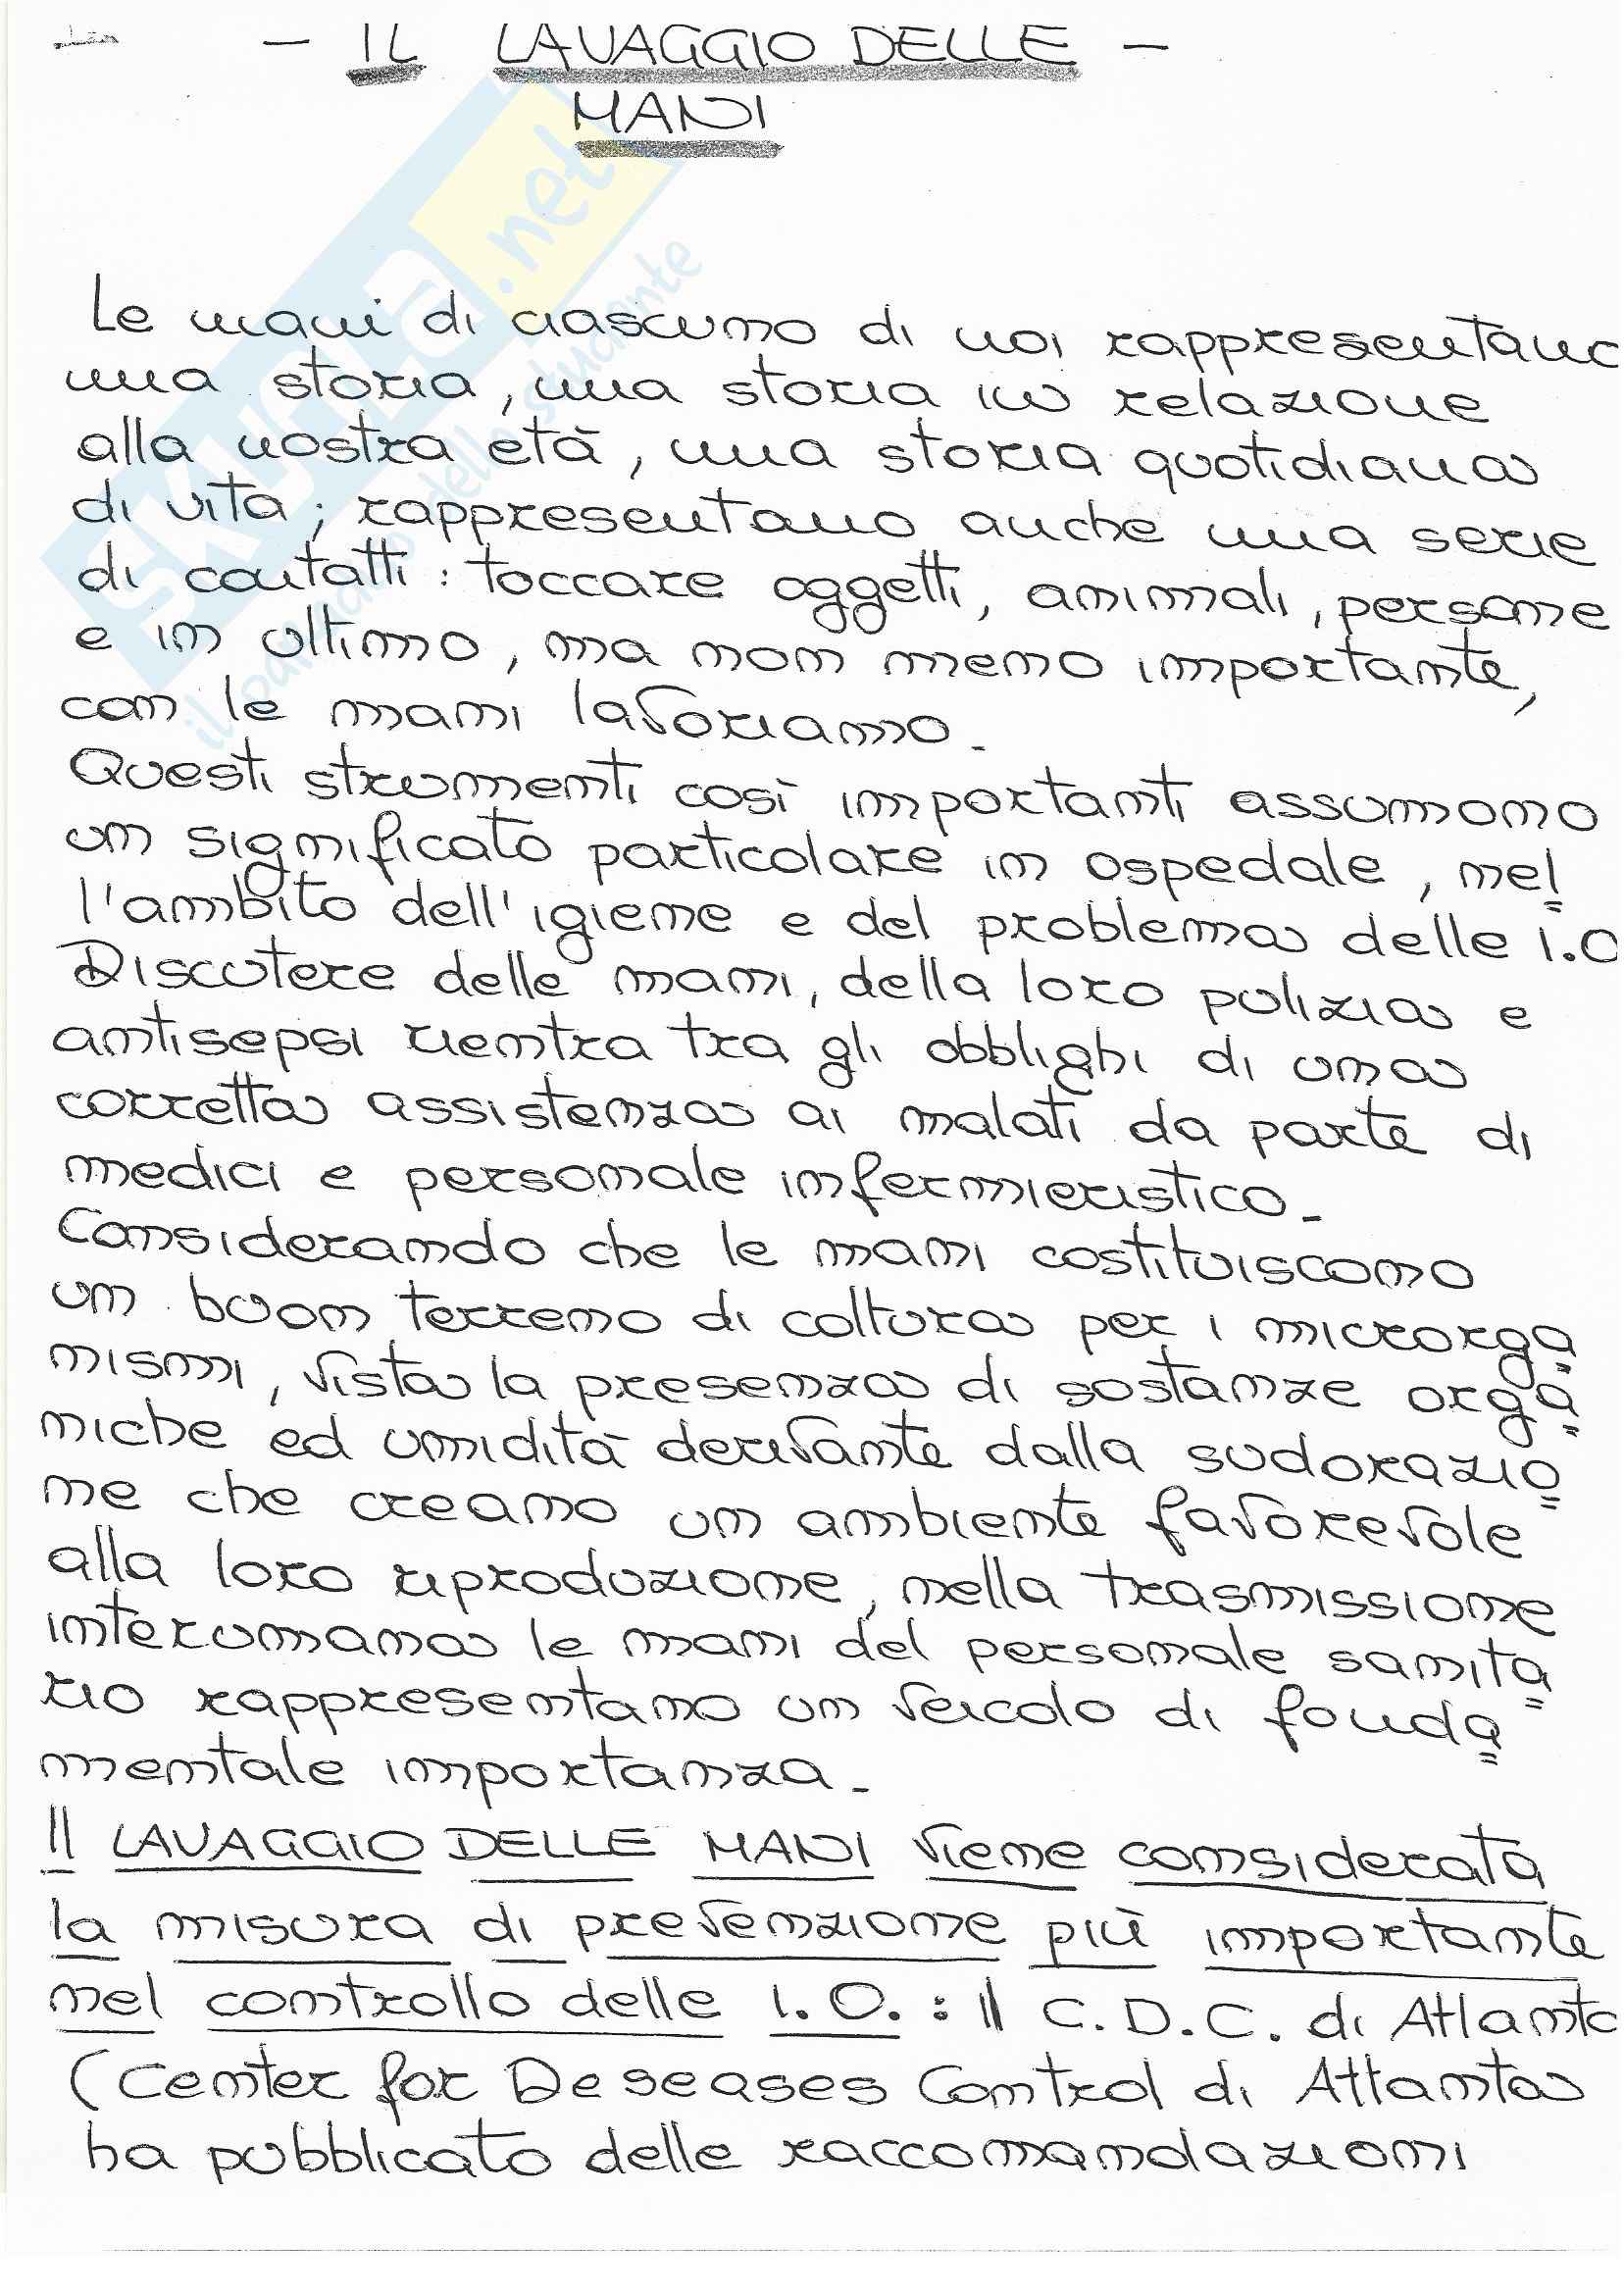 - IL LAVAGGIO DELLE -
MANI
Skuola.net
il paradiso dello studente
Le mani di ciascuno di noi rappresentano
una storia, una storia in relazione
alla nostra età, una storia quotidiana
di vita; rappresentano anche una serie
di contatti: toccare oggetti, animali, persone
e in ultimo, ma non meno importante,
con le mani lavoriamo.
Questi strumenti così importanti assumono
un significato particolare in ospedale, nel
l'ambito dell'igiene e del problema delle I.O
Discutere delle mani, della loro pulizia e
antisepsi rientra tra gli obblighi di una
corretta assistenza ai malati da parte di
medici e personale infermieristico.
Considerando che le mani costituiscono
un buon terreno di coltura per i microrga
nismi, vista la presenza di sostanze orga
niche ed umidità derivante dalla sudorazio
ne che creano un ambiente favorevole
alla loro riproduzione, nella trasmissione
interumana le mani del personale sanita
rio rappresentano un veicolo di fonda
mentale importanza.
Il LAVAGGIO DELLE MANI viene considerata
la misura di prevenzione più importante
nel controllo delle I.O.: Il C.D.C. di Atlanta
(Center for Deseases Control di Atlanta
ha pubblicato delle raccomandazioni